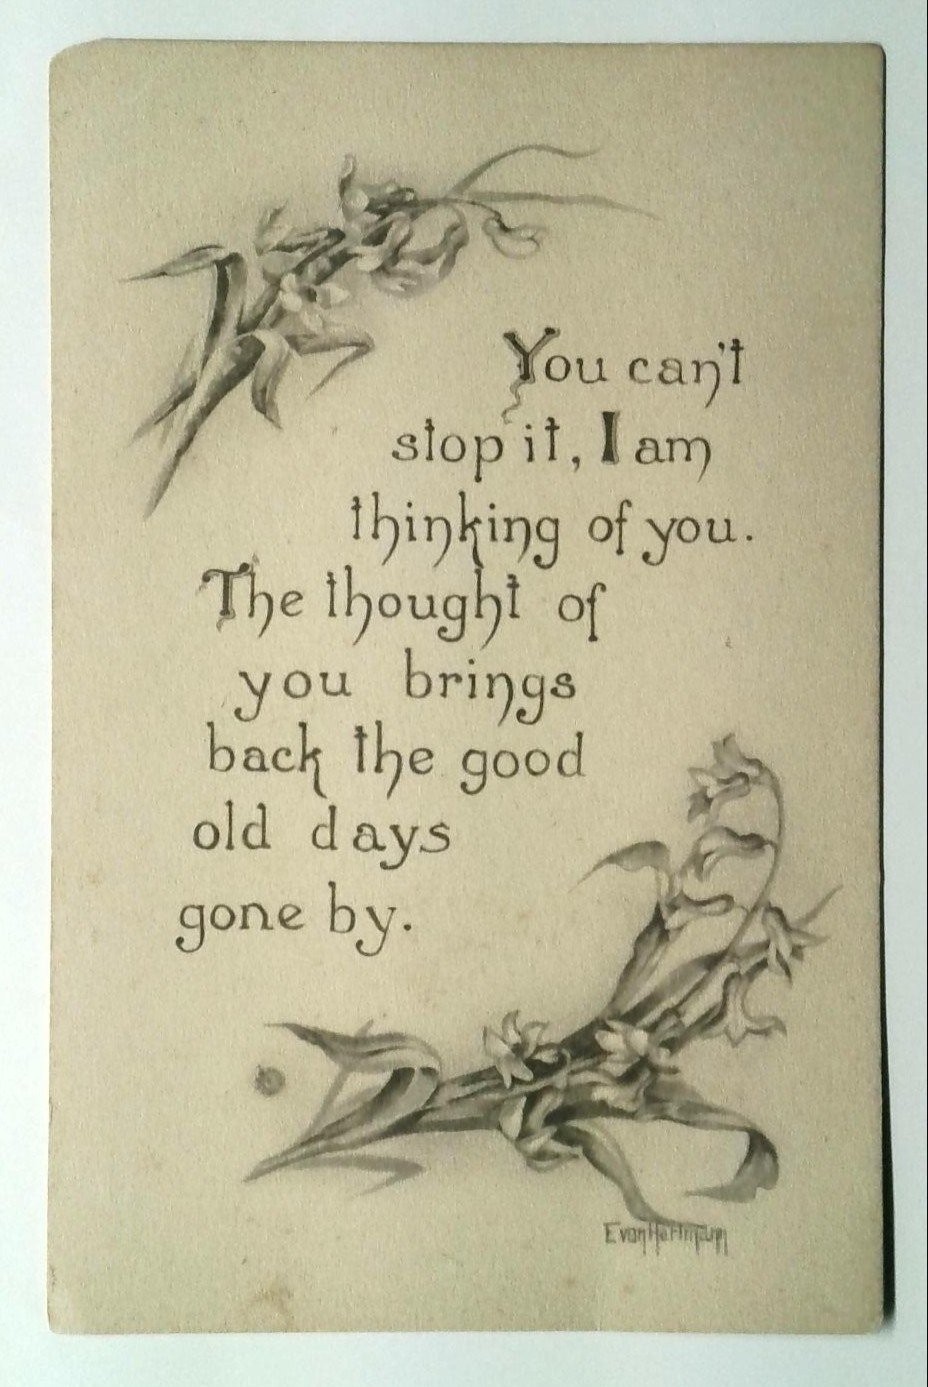 You can't
stop it, I am
thinking of you.
The thought of
you brings
back the good
old days
gone by.
E von Hartmann